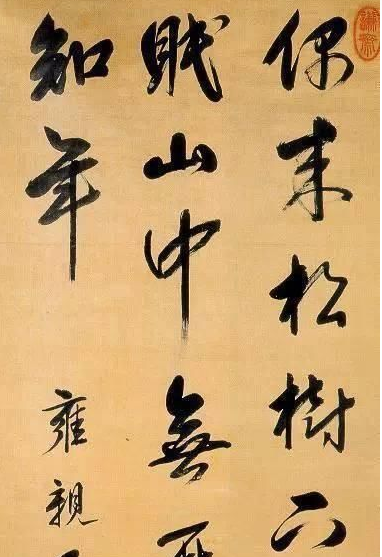 偶来松樹下
眠山中無
知年
雍親